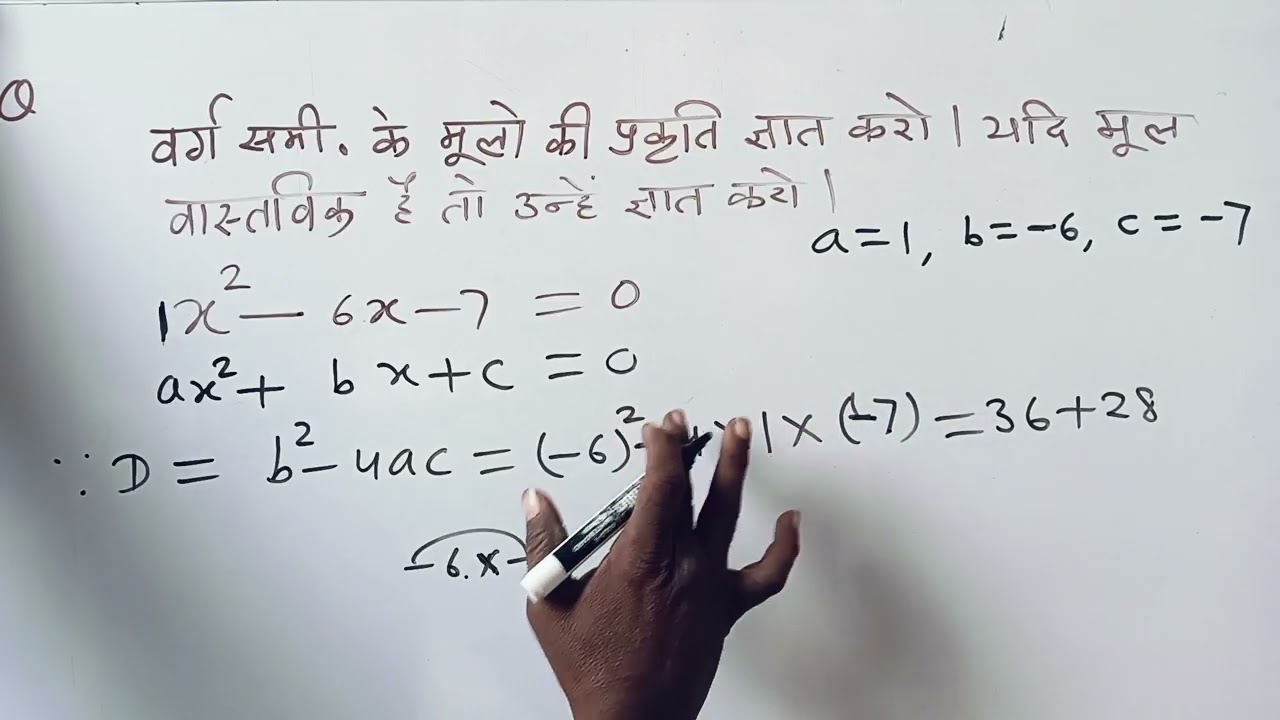 Q
वर्ग समी. के मूलो की प्रकृति ज्ञात करो। यदि मूल
वास्तविक हैं तो उन्हें ज्ञात करो।
a=1, b=-6, c=-7
1x² - 6x-7 = 0
ax²+ bx+c = 0
∵ D = b²-4ac = (-6)² 1×(-7) =36+28
-6.x-